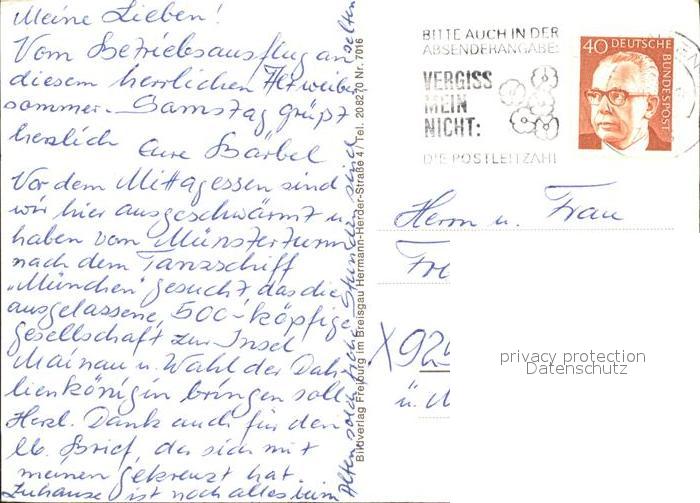 Meine Lieben!
Vom Betriebsausflug an
diesem herrlichen Altweiber
sommer-Samstag grüßt
herzlich Eure Bärbel
Vor dem Mittagessen sind
wir hier ausgeschwärmt u.
haben vom Münsterturm
nach dem Tanzschiff
"München" gesucht, das die
ausgelassene, 500-köpfige
Gesellschaft zur Insel
Mainau u. Wahl der Dah-
lienkönigin bringen soll.
Herzl. Dank auch für den
lb. Brief, der sich mit
meinem gekreuzt hat.
Zuhause ist noch alles beim
Alten, solch frohe Stunden sind
selten
Bildverlag Freiburg im Breisgau Hermann-Herder-Straße 4 / Tel. 208270 Nr. 7016
BITTE AUCH IN DER
ABSENDERANGABE:
VERGISS
MEIN
NICHT:
DIE POSTLEITZAHL
40 DEUTSCHE
BUNDESPOST
Herrn u. Frau
Fre
X 924
ü. M
privacy protection
Datenschutz